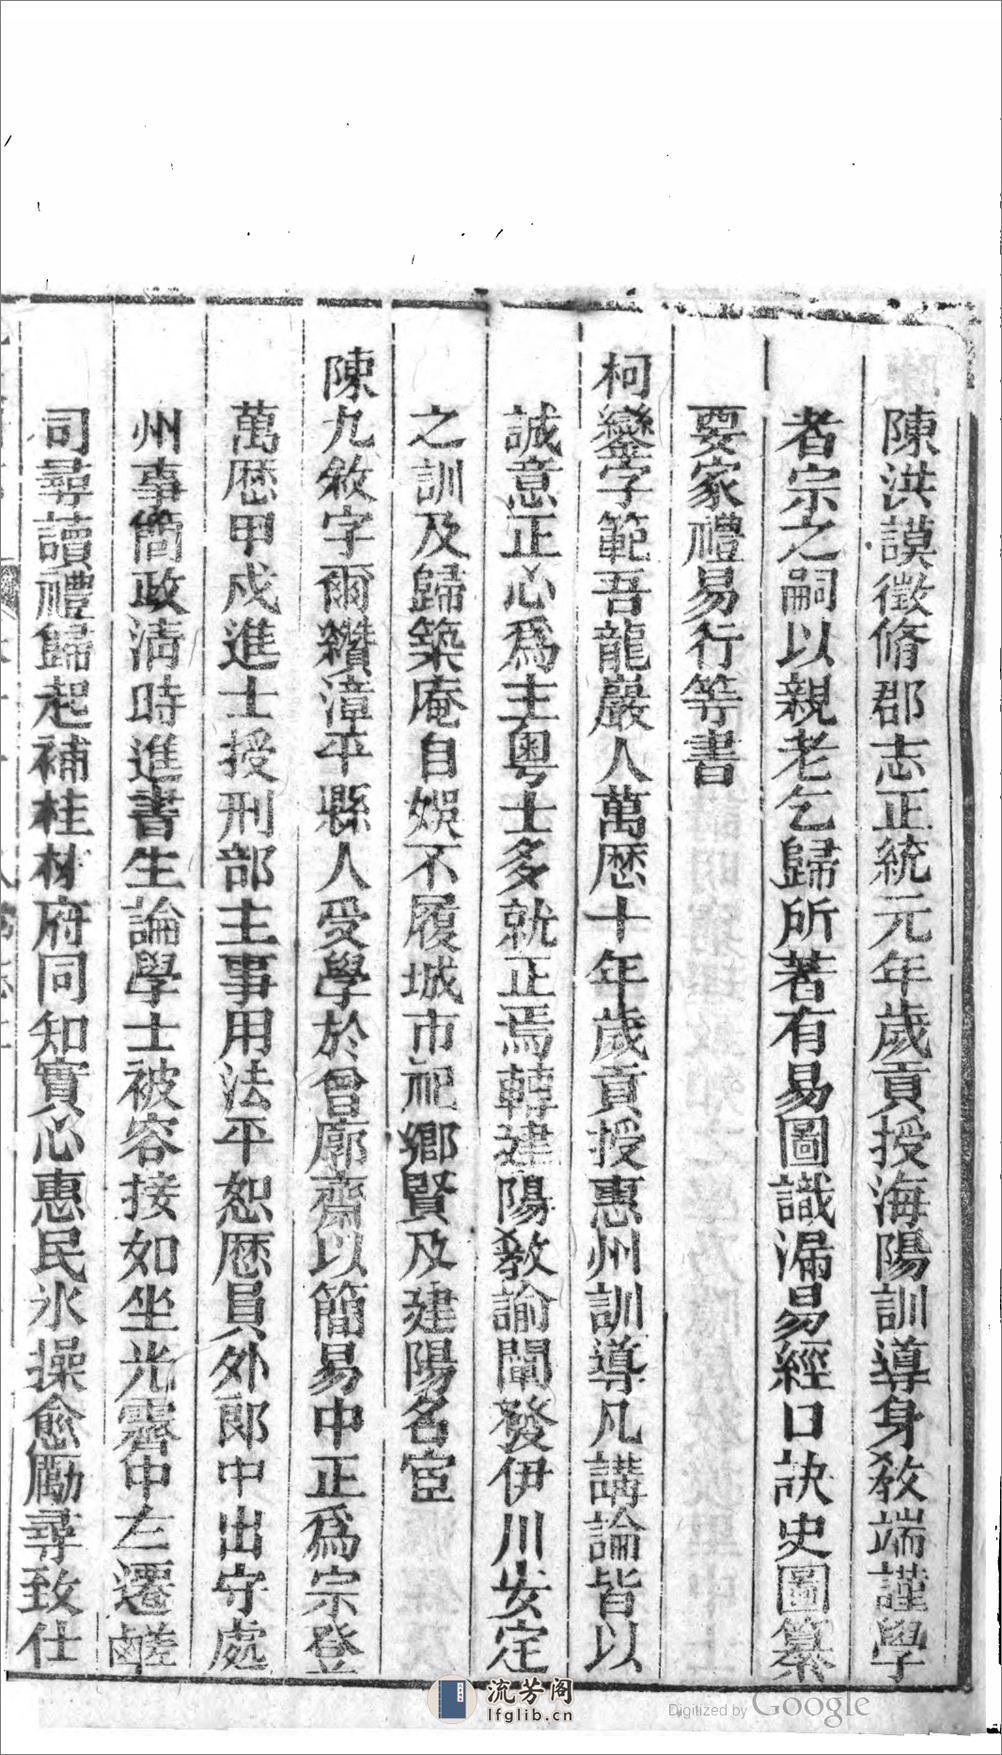 陳洪謨徵脩郡志正統元年歲貢授海陽訓導身教端謹學
者宗之嗣以親老乞歸所著有易圖識漏易經口訣史圖纂
要家禮易行等書
柯鑾字範吾龍巖人萬歷十年歲貢授惠州訓導凡講論皆以
誠意正心爲主粵士多就正焉轉建陽教諭闡發伊川安定
之訓及歸築庵自娛不履城市祀鄉賢及建陽名宦
陳九敘字爾纘漳平縣人受學於曾廓齋以簡易中正爲宗登
萬歷甲戍進士授刑部主事用法平恕歷員外郎中出守處
州事簡政清時進書生論學士被容接如坐光霽中左遷鹺
司尋讀禮歸起補桂林府同知實心惠民氷操愈勵尋致仕
流芳阁
lfglib.cn
Digitized by Google